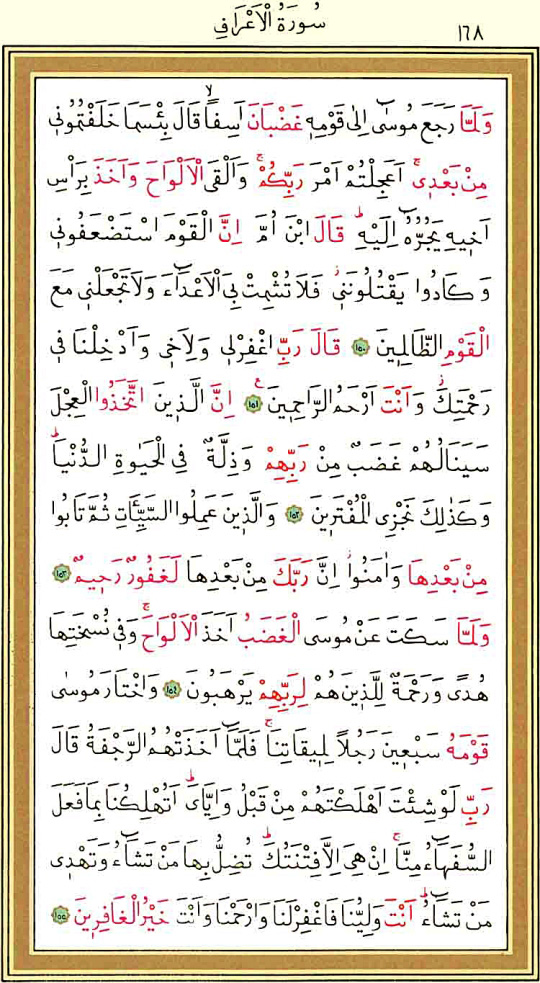 سُورَةُ الْاَعْرَافِ
١٦٨
وَلَمَّا رَجَعَ مُوسٰٓى اِلٰى قَوْمِه۪ غَضْبَانَ اَسِفًاۙ قَالَ بِئْسَمَا خَلَفْتُمُون۪ي
مِنْ بَعْد۪يۚ اَعَجِلْتُمْ اَمْرَ رَبِّكُمْۚ وَاَلْقَى الْاَلْوَاحَ وَاَخَذَ بِرَأْسِ
اَخ۪يهِ يَجُرُّهُٓ اِلَيْهِۜ قَالَ ابْنَ اُمَّ اِنَّ الْقَوْمَ اسْتَضْعَفُون۪ي
وَكَادُوا يَقْتُلُونَن۪يۘ فَلَا تُشْمِتْ بِيَ الْاَعْدَٓاءَ وَلَا تَجْعَلْن۪ي مَعَ
الْقَوْمِ الظَّالِم۪ينَ ١٥٠ قَالَ رَبِّ اغْفِرْ ل۪ي وَلِاَخ۪ي وَاَدْخِلْنَا ف۪ي
رَحْمَتِكَۘ وَاَنْتَ اَرْحَمُ الرَّاحِم۪ينَ۟ ١٥١ اِنَّ الَّذ۪ينَ اتَّخَذُوا الْعِجْلَ
سَيَنَالُهُمْ غَضَبٌ مِنْ رَبِّهِمْ وَذِلَّةٌ فِي الْحَيٰوةِ الدُّنْيَاۜ
وَكَذٰلِكَ نَجْزِي الْمُفْتَر۪ينَ ١٥٢ وَالَّذ۪ينَ عَمِلُوا السَّيِّـَٔاتِ ثُمَّ تَابُوا
مِنْ بَعْدِهَا وَاٰمَنُواۘ اِنَّ رَبَّكَ مِنْ بَعْدِهَا لَغَفُورٌ رَح۪يمٌ ١٥٣
وَلَمَّا سَكَتَ عَنْ مُوسَى الْغَضَبُ اَخَذَ الْاَلْوَاحَۚ وَف۪ي نُسْخَتِهَا
هُدًى وَرَحْمَةٌ لِلَّذ۪ينَ هُمْ لِرَبِّهِمْ يَرْهَبُونَ ١٥٤ وَاخْتَارَ مُوسٰى
قَوْمَهُ سَبْع۪ينَ رَجُلًا لِم۪يقَاتِنَاۚ فَلَمَّٓا اَخَذَتْهُمُ الرَّجْفَةُ قَالَ
رَبِّ لَوْ شِئْتَ اَهْلَكْتَهُمْ مِنْ قَبْلُ وَاِيَّايَۜ اَتُهْلِكُنَا بِمَا فَعَلَ
السُّفَهَٓاءُ مِنَّاۚ اِنْ هِيَ اِلَّا فِتْنَتُكَۜ تُضِلُّ بِهَا مَنْ تَشَٓاءُ وَتَهْد۪ي
مَنْ تَشَٓاءُۜ اَنْتَ وَلِيُّنَا فَاغْفِرْ لَنَا وَارْحَمْنَا وَاَنْتَ خَيْرُ الْغَافِر۪ينَ ١٥٥